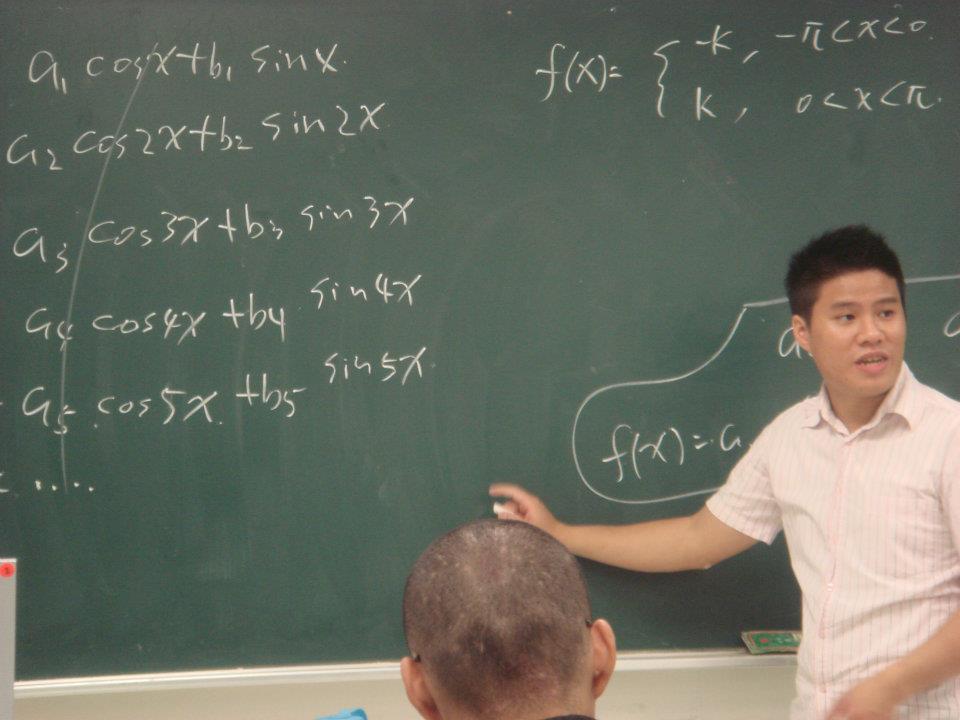 a₁ cosx+b₁ sinx.
a₂ cos2x+b₂ sin2x
a₃ cos3x+b₃ sin3x
a₄ cos4x+b4 sin4x
a₅ cos5x+b5 sin5x
....
f(x)= { -k, -π<x<0.
k, 0<x<π.
f(x)= a